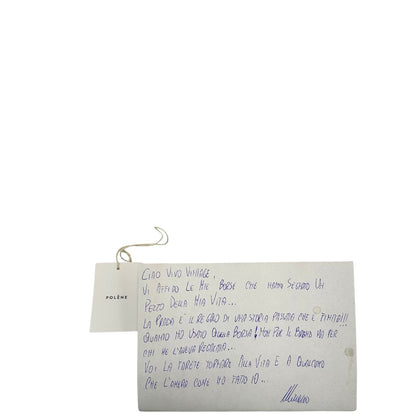 POLÈNE
CIAO VIVO VINTAGE,
VI AFFIDO LE MIE BORSE CHE HANNO SEGNATO UN
PEZZO DELLA MIA VITA...
LA PRADA È IL REGALO DI UNA STORIA PASSATA CHE È FINITA!!!
QUANTO HO USATO QUELLA BORSA! NON PER IL BRAND MA PER
CHI ME L'AVEVA REGALATA...
VOI LA FARETE TORNARE ALLA VITA E A QUALCUNO
CHE L'AMERÀ COME HO FATTO IO...